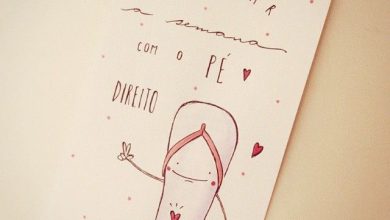 a semana
COM O PÉ
DIREITO